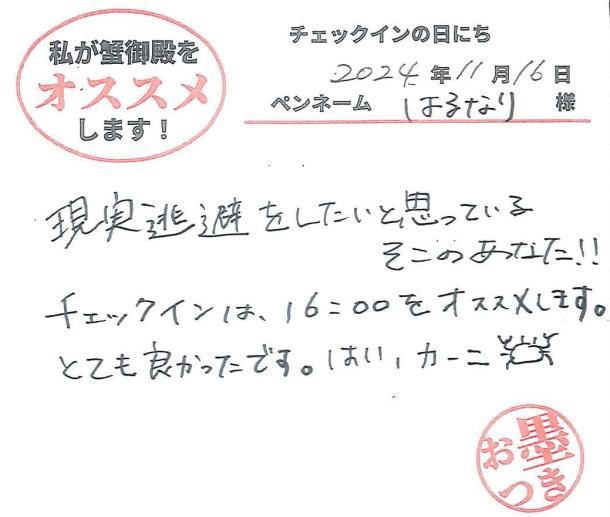 私が蟹御殿を
オススメ
します!
チェックインの日にち
2024 年 11 月 16 日
ペンネーム はるなり 様
現実逃避をしたいと思っている
そこのあなた!!
チェックインは、16:00をオススメします。
とても良かったです。はい、カーニ
お墨
つき